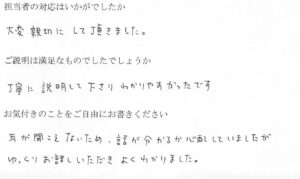 担当者の対応はいかがでしたか
大変親切にして頂きました。
ご説明は満足なものでしたでしょうか
丁寧に説明して下さりわかりやすかったです
お気付きのことをご自由にお書きください
耳が聞こえないため、話が分かるか心配していましたが
ゆっくりお話しいただきよくわかりました。